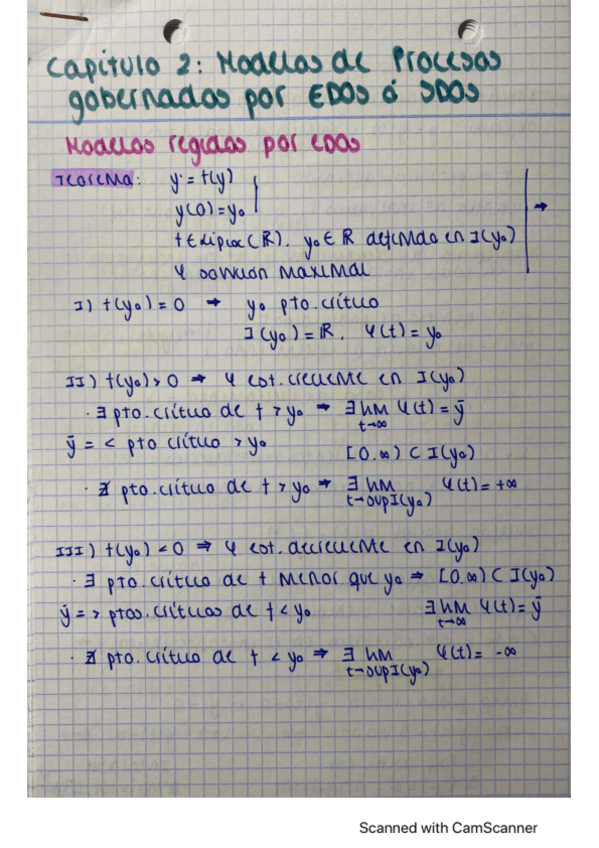 Capítulo 2: Modelos de Procesos
gobernados por EDOs ó SDOs
Modelos regidos por EDOs
Teorema: y' = f(y)
y(0) = y₀
f ∈ Liploc(ℝ), y₀ ∈ ℝ definido en I(y₀) →
φ solución maximal
I) f(y₀) = 0 → y₀ pto. crítico
I(y₀) = ℝ, φ(t) = y₀
II) f(y₀) > 0 → φ est. creciente en I(y₀)
· ∃ pto. crítico de f > y₀ → ∃ lim φ(t) = ȳ
t→∞
ȳ = < pto crítico > y₀
[0, ∞) ⊂ I(y₀)
· ∄ pto. crítico de f > y₀ → ∃ lim φ(t) = +∞
t→sup I(y₀)
III) f(y₀) < 0 → φ est. decreciente en I(y₀)
· ∃ pto. crítico de f menor que y₀ → [0, ∞) ⊂ I(y₀)
ȳ = > ptos. críticos de f < y₀ ∃ lim φ(t) = ȳ
t→∞
· ∄ pto. crítico de f < y₀ → ∃ lim φ(t) = -∞
t→sup I(y₀)
Scanned with CamScanner